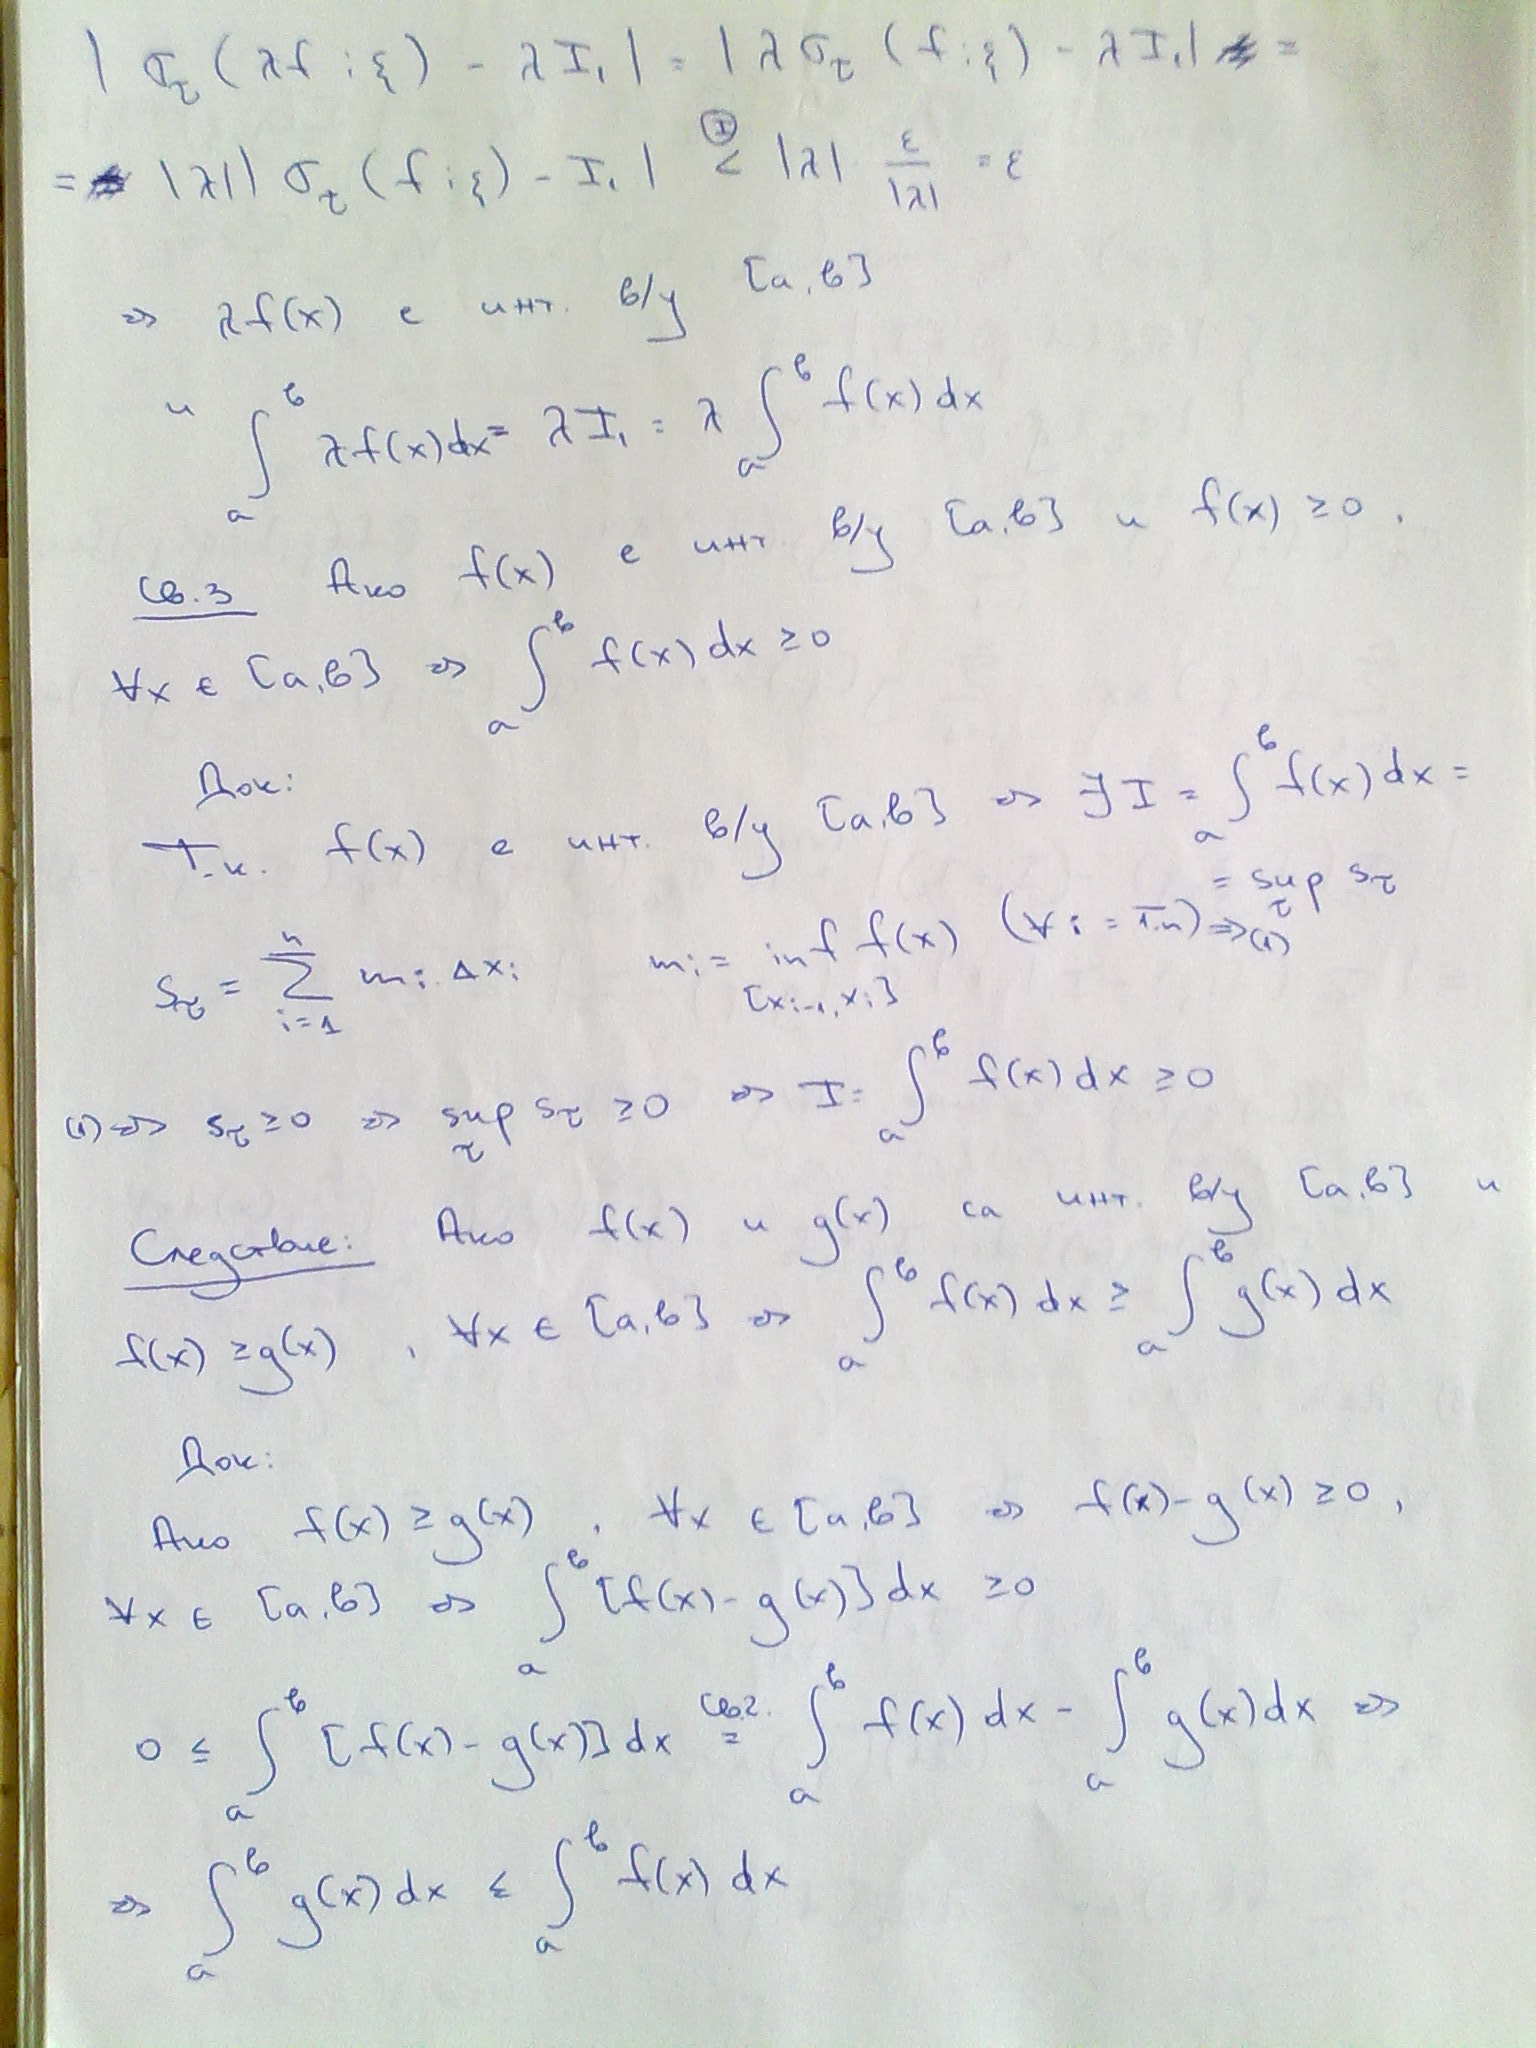 | σ_τ (λf ; ξ) - λI₁ | = | λσ_τ (f ; ξ) - λI₁ | =
= |λ| | σ_τ (f ; ξ) - I₁ | <^(I) |λ| ε/|λ| = ε
=> λf(x) е инт. в/у [a,b]
и ∫_a^b λf(x)dx = λI₁ = λ ∫_a^b f(x)dx
Св.3 Ако f(x) е инт. в/у [a,b] и f(x) ≥ 0,
∀x ∈ [a,b] => ∫_a^b f(x)dx ≥ 0
Док:
Т.к. f(x) е инт. в/у [a,b] => ∃ I = ∫_a^b f(x)dx =
= sup_τ s_τ
s_τ = ∑_{i=1}^n m_i Δx_i m_i = inf_{[x_{i-1}, x_i]} f(x) (∀ i = 1,n) => (1)
(1) => s_τ ≥ 0 => sup_τ s_τ ≥ 0 => I = ∫_a^b f(x)dx ≥ 0
Следствие: Ако f(x) и g(x) са инт. в/у [a,b] и
f(x) ≥ g(x), ∀x ∈ [a,b] => ∫_a^b f(x)dx ≥ ∫_a^b g(x)dx
Док:
Ако f(x) ≥ g(x), ∀x ∈ [a,b] => f(x) - g(x) ≥ 0,
∀x ∈ [a,b] => ∫_a^b [f(x) - g(x)]dx ≥ 0
0 ≤ ∫_a^b [f(x) - g(x)]dx =^(Св.2.) ∫_a^b f(x)dx - ∫_a^b g(x)dx =>
=> ∫_a^b g(x)dx ≤ ∫_a^b f(x)dx